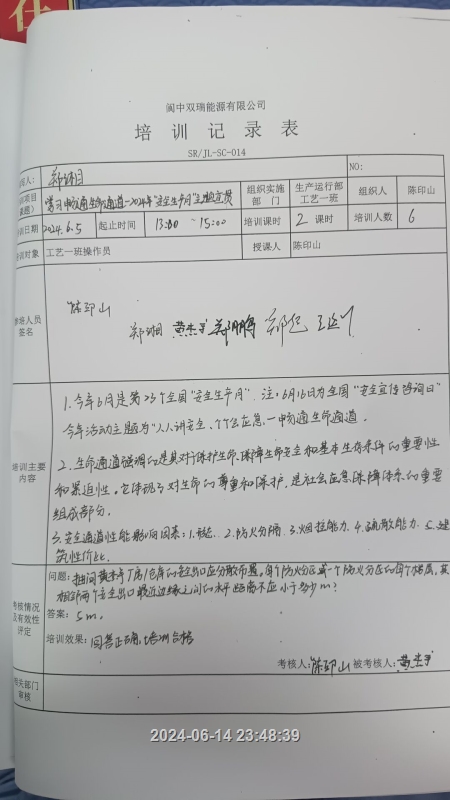 阆中双瑞能源有限公司
培 训 记 录 表
SR/JL-SC-014
郑湘
NO:
学习畅通生命通道-2024年"安全生产月"主题宣贯
组织实施部 门
生产运行部工艺一班
组织人
陈印山
培训日期
2024.6.5
起止时间
13:00 ~ 15:00
培训课时
2 课时
培训人数
6
培训对象
工艺一班操作员
授课人
陈印山
参培人员签名
陈印山
郑湘
培训主要内容
1.今年6月是第23个全国"安全生产月". 注:6月16日为全国"安全宣传咨询日"
今年活动主题为"人人讲安全、个个会应急—畅通生命通道.
2.生命通道强调的是其对于保护生命、保障生命安全和基本生存条件的重要性
和紧迫性。它体现了对生命的尊重和保护,是社会应急保障体系的重要
组成部分.
3.安全通道性能影响因素:1. 2.防火分隔. 3.烟控能力. 4.疏散能力. 5.建
筑性价比.
考核情况及有效性评定
问题: 厂房/仓库的安全出口应分散布置。每个防火分区或一个防火分区的每个楼层,其
相邻两个安全出口最近边缘之间的水平距离不应小于多少m?
答案: 5m.
培训效果: 回答正确,培训合格
考核人: 陈印山 被考核人:
相关部门审核
2024-06-14 23:48:39